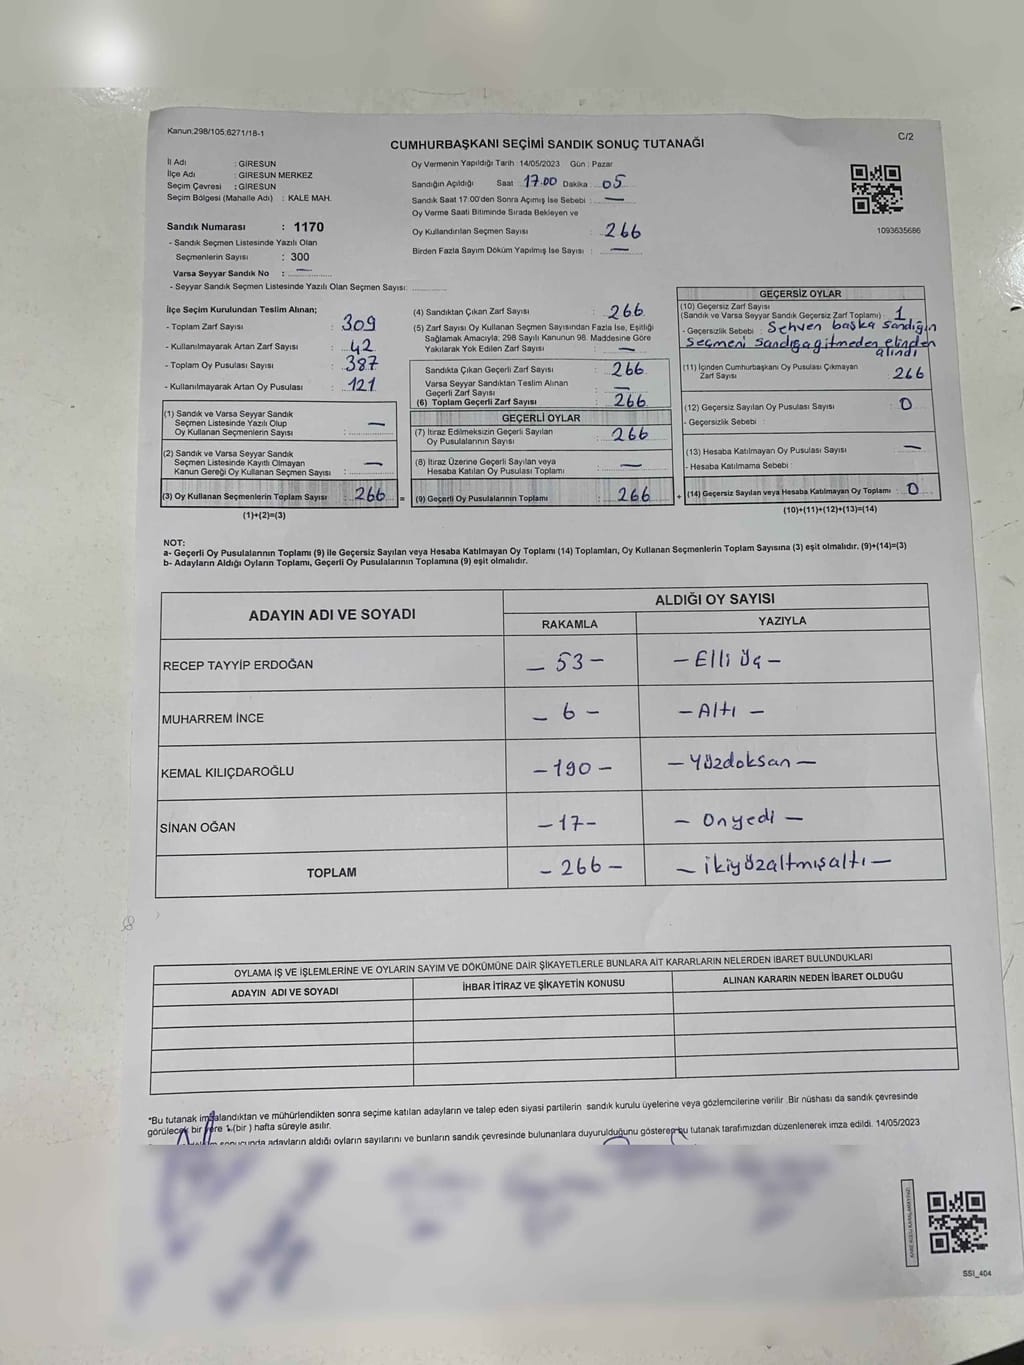 Kanun:298/105;6271/18-1
C/2
CUMHURBAŞKANI SEÇİMİ SANDIK SONUÇ TUTANAĞI
İl Adı : GİRESUN
İlçe Adı : GİRESUN MERKEZ
Seçim Çevresi : GİRESUN
Seçim Bölgesi (Mahalle Adı) : KALE MAH.
Sandık Numarası : 1170
- Sandık Seçmen Listesinde Yazılı Olan
Seçmenlerin Sayısı : 300
Varsa Seyyar Sandık No : —
- Seyyar Sandık Seçmen Listesinde Yazılı Olan Seçmen Sayısı:
Oy Vermenin Yapıldığı Tarih :14/05/2023 Gün : Pazar
Sandığın Açıldığı Saat 17.00 Dakika : 05
Sandık Saat 17:00'den Sonra Açımış İse Sebebi : —
Oy Verme Saati Bitiminde Sırada Bekleyen ve
Oy Kullandırılan Seçmen Sayısı : 266
Birden Fazla Sayım Döküm Yapılmış İse Sayısı : —
1093635686
İlçe Seçim Kurulundan Teslim Alınan;
- Toplam Zarf Sayısı : 309
- Kullanılmayarak Artan Zarf Sayısı : 42
- Toplam Oy Pusulası Sayısı : 387
- Kullanılmayarak Artan Oy Pusulası : 121
(1) Sandık ve Varsa Seyyar Sandık
Seçmen Listesinde Yazılı Olup
Oy Kullanan Seçmenlerin Sayısı : —
(2) Sandık ve Varsa Seyyar Sandık
Seçmen Listesinde Kayıtlı Olmayan
Kanun Gereği Oy Kullanan Seçmen Sayısı : —
(3) Oy Kullanan Seçmenlerin Toplam Sayısı : 266 =
(1)+(2)=(3)
(4) Sandıktan Çıkan Zarf Sayısı : 266
(5) Zarf Sayısı Oy Kullanan Seçmen Sayısından Fazla İse, Eşitliği
Sağlamak Amacıyla; 298 Sayılı Kanunun 98. Maddesine Göre
Yakılarak Yok Edilen Zarf Sayısı : —
Sandıkta Çıkan Geçerli Zarf Sayısı : 266
Varsa Seyyar Sandıktan Teslim Alınan
Geçerli Zarf Sayısı : —
(6) Toplam Geçerli Zarf Sayısı : 266
GEÇERLİ OYLAR
(7) İtiraz Edilmeksizin Geçerli Sayılan
Oy Pusulalarının Sayısı : 266
(8) İtiraz Üzerine Geçerli Sayılan veya
Hesaba Katılan Oy Pusulası Toplamı : —
(9) Geçerli Oy Pusulalarının Toplamı : 266 +
GEÇERSİZ OYLAR
(10) Geçersiz Zarf Sayısı
(Sandık ve Varsa Seyyar Sandık Geçersiz Zarf Toplamı) : 1
- Geçersizlik Sebebi : Sehven başka sandığın
seçmeni sandığa gitmeden elinden
alındı
(11) İçinden Cumhurbaşkanı Oy Pusulası Çıkmayan
Zarf Sayısı 266
(12) Geçersiz Sayılan Oy Pusulası Sayısı : 0
- Geçersizlik Sebebi :
(13) Hesaba Katılmayan Oy Pusulası Sayısı : —
- Hesaba Katılmama Sebebi :
(14) Geçersiz Sayılan veya Hesaba Katılmayan Oy Toplamı : 0
(10)+(11)+(12)+(13)=(14)
NOT:
a- Geçerli Oy Pusulalarının Toplamı (9) ile Geçersiz Sayılan veya Hesaba Katılmayan Oy Toplamı (14) Toplamları, Oy Kullanan Seçmenlerin Toplam Sayısına (3) eşit olmalıdır. (9)+(14)=(3)
b- Adayların Aldığı Oyların Toplamı, Geçerli Oy Pusulalarının Toplamına (9) eşit olmalıdır.
ADAYIN ADI VE SOYADI
ALDIĞI OY SAYISI
RAKAMLA YAZIYLA
RECEP TAYYİP ERDOĞAN – 53 – – Elli üç –
MUHARREM İNCE – 6 – – Altı –
KEMAL KILIÇDAROĞLU – 190 – – Yüzdoksan –
SİNAN OĞAN – 17 – – Onyedi –
TOPLAM – 266 – – ikiyüzaltmışaltı –
OYLAMA İŞ VE İŞLEMLERİNE VE OYLARIN SAYIM VE DÖKÜMÜNE DAİR ŞİKAYETLERLE BUNLARA AİT KARARLARIN NELERDEN İBARET BULUNDUKLARI
ADAYIN ADI VE SOYADI İHBAR İTİRAZ VE ŞİKAYETİN KONUSU ALINAN KARARIN NEDEN İBARET OLDUĞU
*Bu tutanak imzalandıktan ve mühürlendikten sonra seçime katılan adayların ve talep eden siyasi partilerin sandık kurulu üyelerine veya gözlemcilerine verilir .Bir nüshası da sandık çevresinde
görülecek bir yere 1.(bir ) hafta süreyle asılır.
sonucunda adayların aldığı oyların sayılarını ve bunların sandık çevresinde bulunanlara duyurulduğunu gösteren bu tutanak tarafımızdan düzenlenerek imza edildi. 14/05/2023
SSI_404